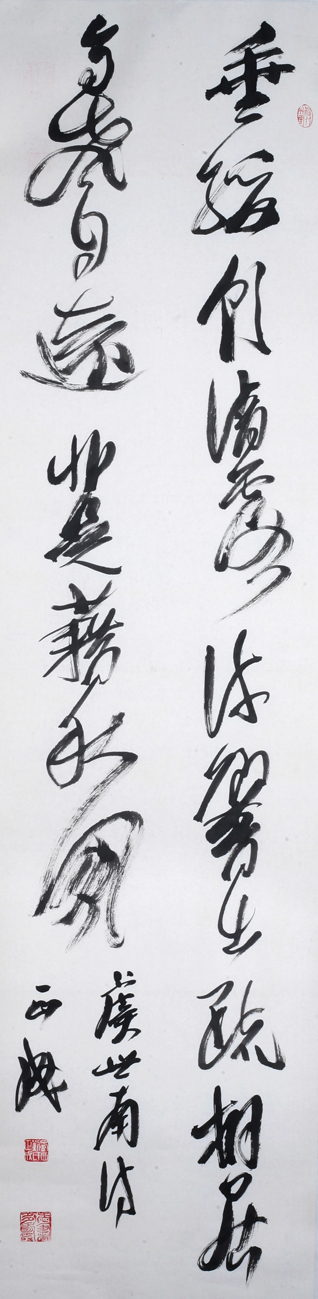 垂緌飲清露流響出疏桐居
高聲自遠非是藉秋風
虞世南詩